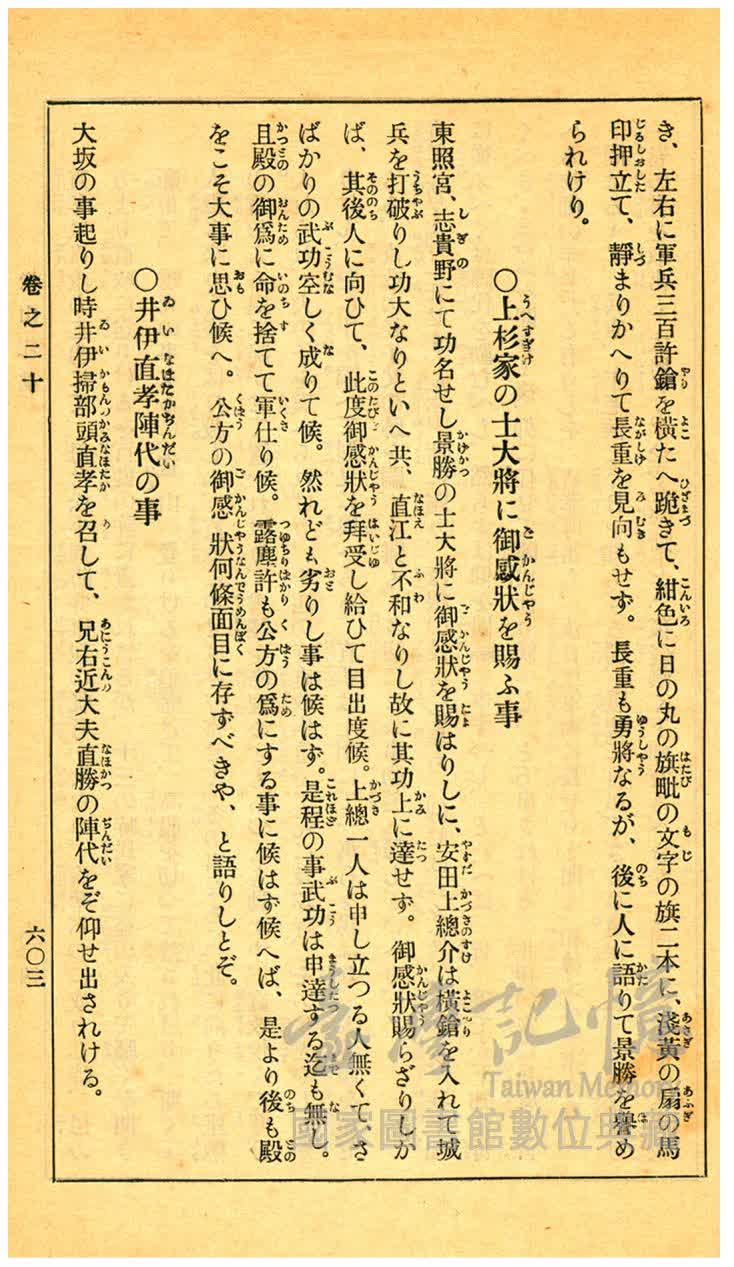 き、左右に軍兵三百許鎗を橫たへ跪きて、紺色に日の丸の旗毗の文字の旗二本に、淺黃の扇の馬
印押立て、靜まりかへりて長重を見向もせず。長重も勇將なるが、後に人に語りて景勝を譽め
られけり。
〇上杉家の士大將に御感狀を賜ふ事
東照宮、志貴野にて功名せし景勝の士大將に御感狀を賜はりしに、安田上總介は橫鎗を入れて城
兵を打破りし功大なりといへ共、直江と不和なりし故に其功上に達せず。御感狀賜らざりしか
ば、其後人に向ひて、此度御感狀を拜受し給ひて目出度候。上總一人は申し立つる人無くて、さ
ばかりの武功空しく成りて候。然れども劣りし事は候はず。是程の事武功は申達する迄も無し。
且殿の御爲に命を捨てて軍仕り候。露塵許も公方の爲にする事に候はず候へば、是より後も殿
をこそ大事に思ひ候へ。公方の御感狀何條面目に存ずべきや、と語りしとぞ。
〇井伊直孝陣代の事
大坂の事起りし時井伊掃部頭直孝を召して、兄右近大夫直勝の陣代をぞ仰せ出されける。
卷之二十
六〇三
臺灣記憶
Taiwan Memory
國家圖書館數位典藏